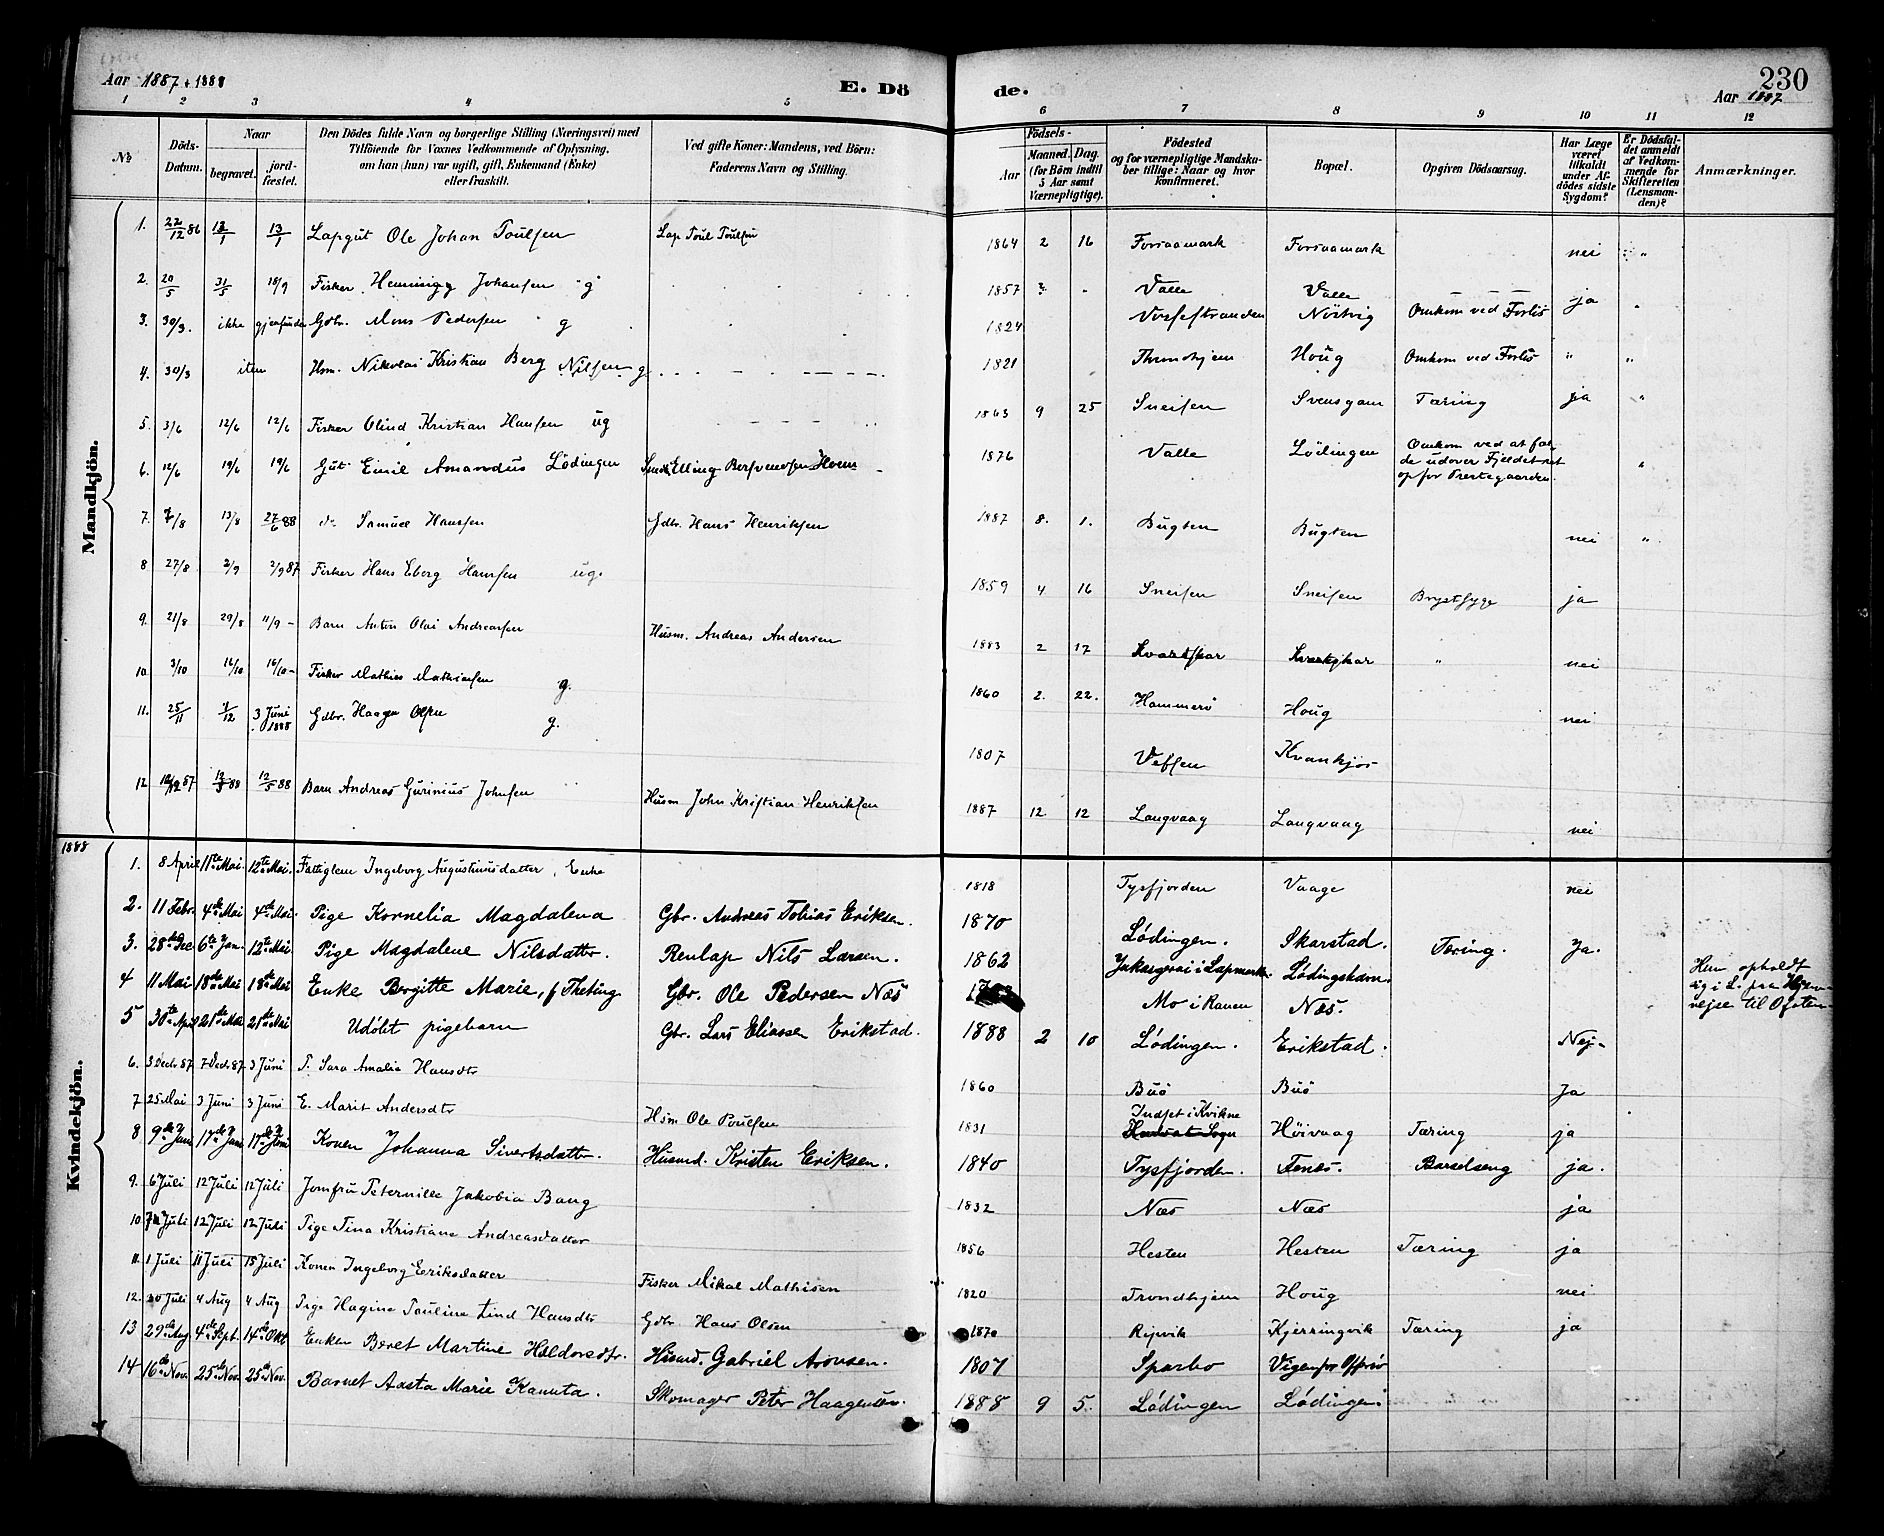 Aar 1887 + 1888
E. Dö
de.
230
Aar 1887
1 2 3 4 5 6 7 8 9 10 11 12
No
Döds-Datum.
Naar
begravet.
jord-fæstet.
Den Dödes fulde Navn og borgerlige Stilling (Næringsvei) med
Tilföiende for Voxnes Vedkommende af Oplysning,
om han (hun) var ugift, gift, Enkemand (Enke)
eller fraskilt.
Ved gifte Koner: Mandens, ved Börn:
Faderens Navn og Stilling.
Födsels-
Aar
Maaned. Dag.
(for Börn indtil
5 Aar samt
Værnepligtige).
Födested
og for værnepligtige Mandska-
ber tillige: Naar og hvor
konfirmeret.
Bopæl.
Opgiven Dödsaarsag.
Har Læge
været
tilkaldt
under Af-
dödes sidste
Sygdom?
Er Dödsfal-
det anmeldt
af Vedkom-
mende for
Skifteretten
(Lensman-
den)?
Anmærkninger.
Mandkjön.
1. 22/12 86 13/1 13/1 Lapgut Ole Johan Poulsen Lap Poul Poulsen 1864 2 16 Forsaamark Forsaamark nei "
2. 20/5 31/5 18/9 Fisker Henningg Johansen g 1857 Valle Valle ja "
3. 30/3. ikke gjenfunden Gdbr. Mons Pedersen g 1824 Vossestranden Nöstvig Omkom ved Forlis
4. 30/3 item Hsm. Nikolai Kristian Berg Nilsen g 1821 Throndhjem Houg Omkom ved Forlis " "
5. 3/6 12/6 12/6 Fisker Olind Kristian Hansen ug 1863 9 25 Sneisen Svensgam Tæring ja "
6. 12/6 19/6 19/6 Gut Emil Amandus Lödingen Elling 1876 Valle Lödingen Omkom ved at fal-
de udover Fjeldet ret
op for Prestegaarden. "
7. 13/8 27/6 88 do Samuel Hansen Gdbr. Hans Henriksen 1887 8. 1. Bugten Bugten nei "
8 27/8 2/9 2/9 87 Fisker Hans Eberg Hansen ug. 1859 4 16 Sneisen Sneisen Brystsyge ja
9. 21/8 29/8 11/9 - Barn Anton Olai Andreassen Husm. Andreas Andersen 1883 2 17 Kvartskar Kvartskar " nei
10. 3/10 16/10 16/10 - Fisker Mathias Mathiassen g. 1860 2. 22. Hammerö Houg nei
11. 25/11 1/12 3 Juni 1888 Gdbr. Haagen Olsen g. 1807 Vefsen Kvankjos
12 12/12 87 12/5 88 12/5 88 Barn Andreas Gurinius Johnsen Husm John Kristian Henriksen 1887 12 12 Langvaag Langvaag nei
1888
Kvindekjön.
1. 8 April 11te Mai. 12te Mai. Fattiglem Ingeborg Augustinusdatter, Enke 1818 Tysfjorden Vaage nei
2. 11 Febr. 4de Mai 4de Mai. Pige Kornelia Magdalena Gbr. Andreas Tobias Eriksen. 1870 Lødingen. Skarstad. Tæring. Ja.
3. 28de Dec 6te Jan. 12te Mai Pige Magdalene Nilsdatter. Renlap Nils Larsen. 1862 i Lapmark. Lødingshavn
Hun opholdt
sig i L. paa Hjem-
reise til Ofoten
4 11 Mai 18de Mai 18de Mai Enke Birgitte Marie, f Theting Gbr. Ole Pedersen Næs Mo i Ranen Næs.
5 30te April 21de Mai 21de Mai Udøbt pigebarn Gbr. Lars Eliassen Erikstad. 1888 2 10 Lødingen. Erikstad. Nej.
6. 3 Decbr 87 7 Decbr 87 3 Juni P. Sara Amalia Hansdtr 1860 Buö Buö Ja
7 25 Mai 3 Juni 3 Juni E. Marit Andersdtr Hsm Ole Poulsen 1831 Indset i Kvikne Sogn Höivaag Tæring ja
8 9de Juni 17de Juni 17de Juni Konen Johanna Sivertsdatter. Husmd. Kristen Eriksen. 1840 Tysfjorden. Fenes. Barselseng ja.
9. 6 Juli 12 Juli 12 Juli Jomfru Peternille Jakobia Bang 1832 Næs Næs ja
10. 7 Juli 12 Juli 12 Juli Pige Tina Kristiane Andreasdatter 1856 Hesten Hesten Tæring ja
11. 1 Juli 11 Juli 15 Juli Konen Ingeborg Eeriksdatter Fisker Mikal Mathisen 1820 Trondhjem Houg nei
12. 20 Juli 4 Aug 4 Aug Pige Hagine Pauline Lind Hansdtr Gdbr Hans Olsen 1870 Ripvik Kjerringvik Tæring ja
13 29de Aug 4de Sept. 14de Okt Enken Beret Martine Haldorsdtr. Husmd. Gabriel Aronsen. 1807 Sparbo
14 16de Nov. 25de Nov. 25de Nov. Barnet Aasta Marie Kanuta. Skomager Peter Haagensen. 1888 9 5. Lødingen Lødingen